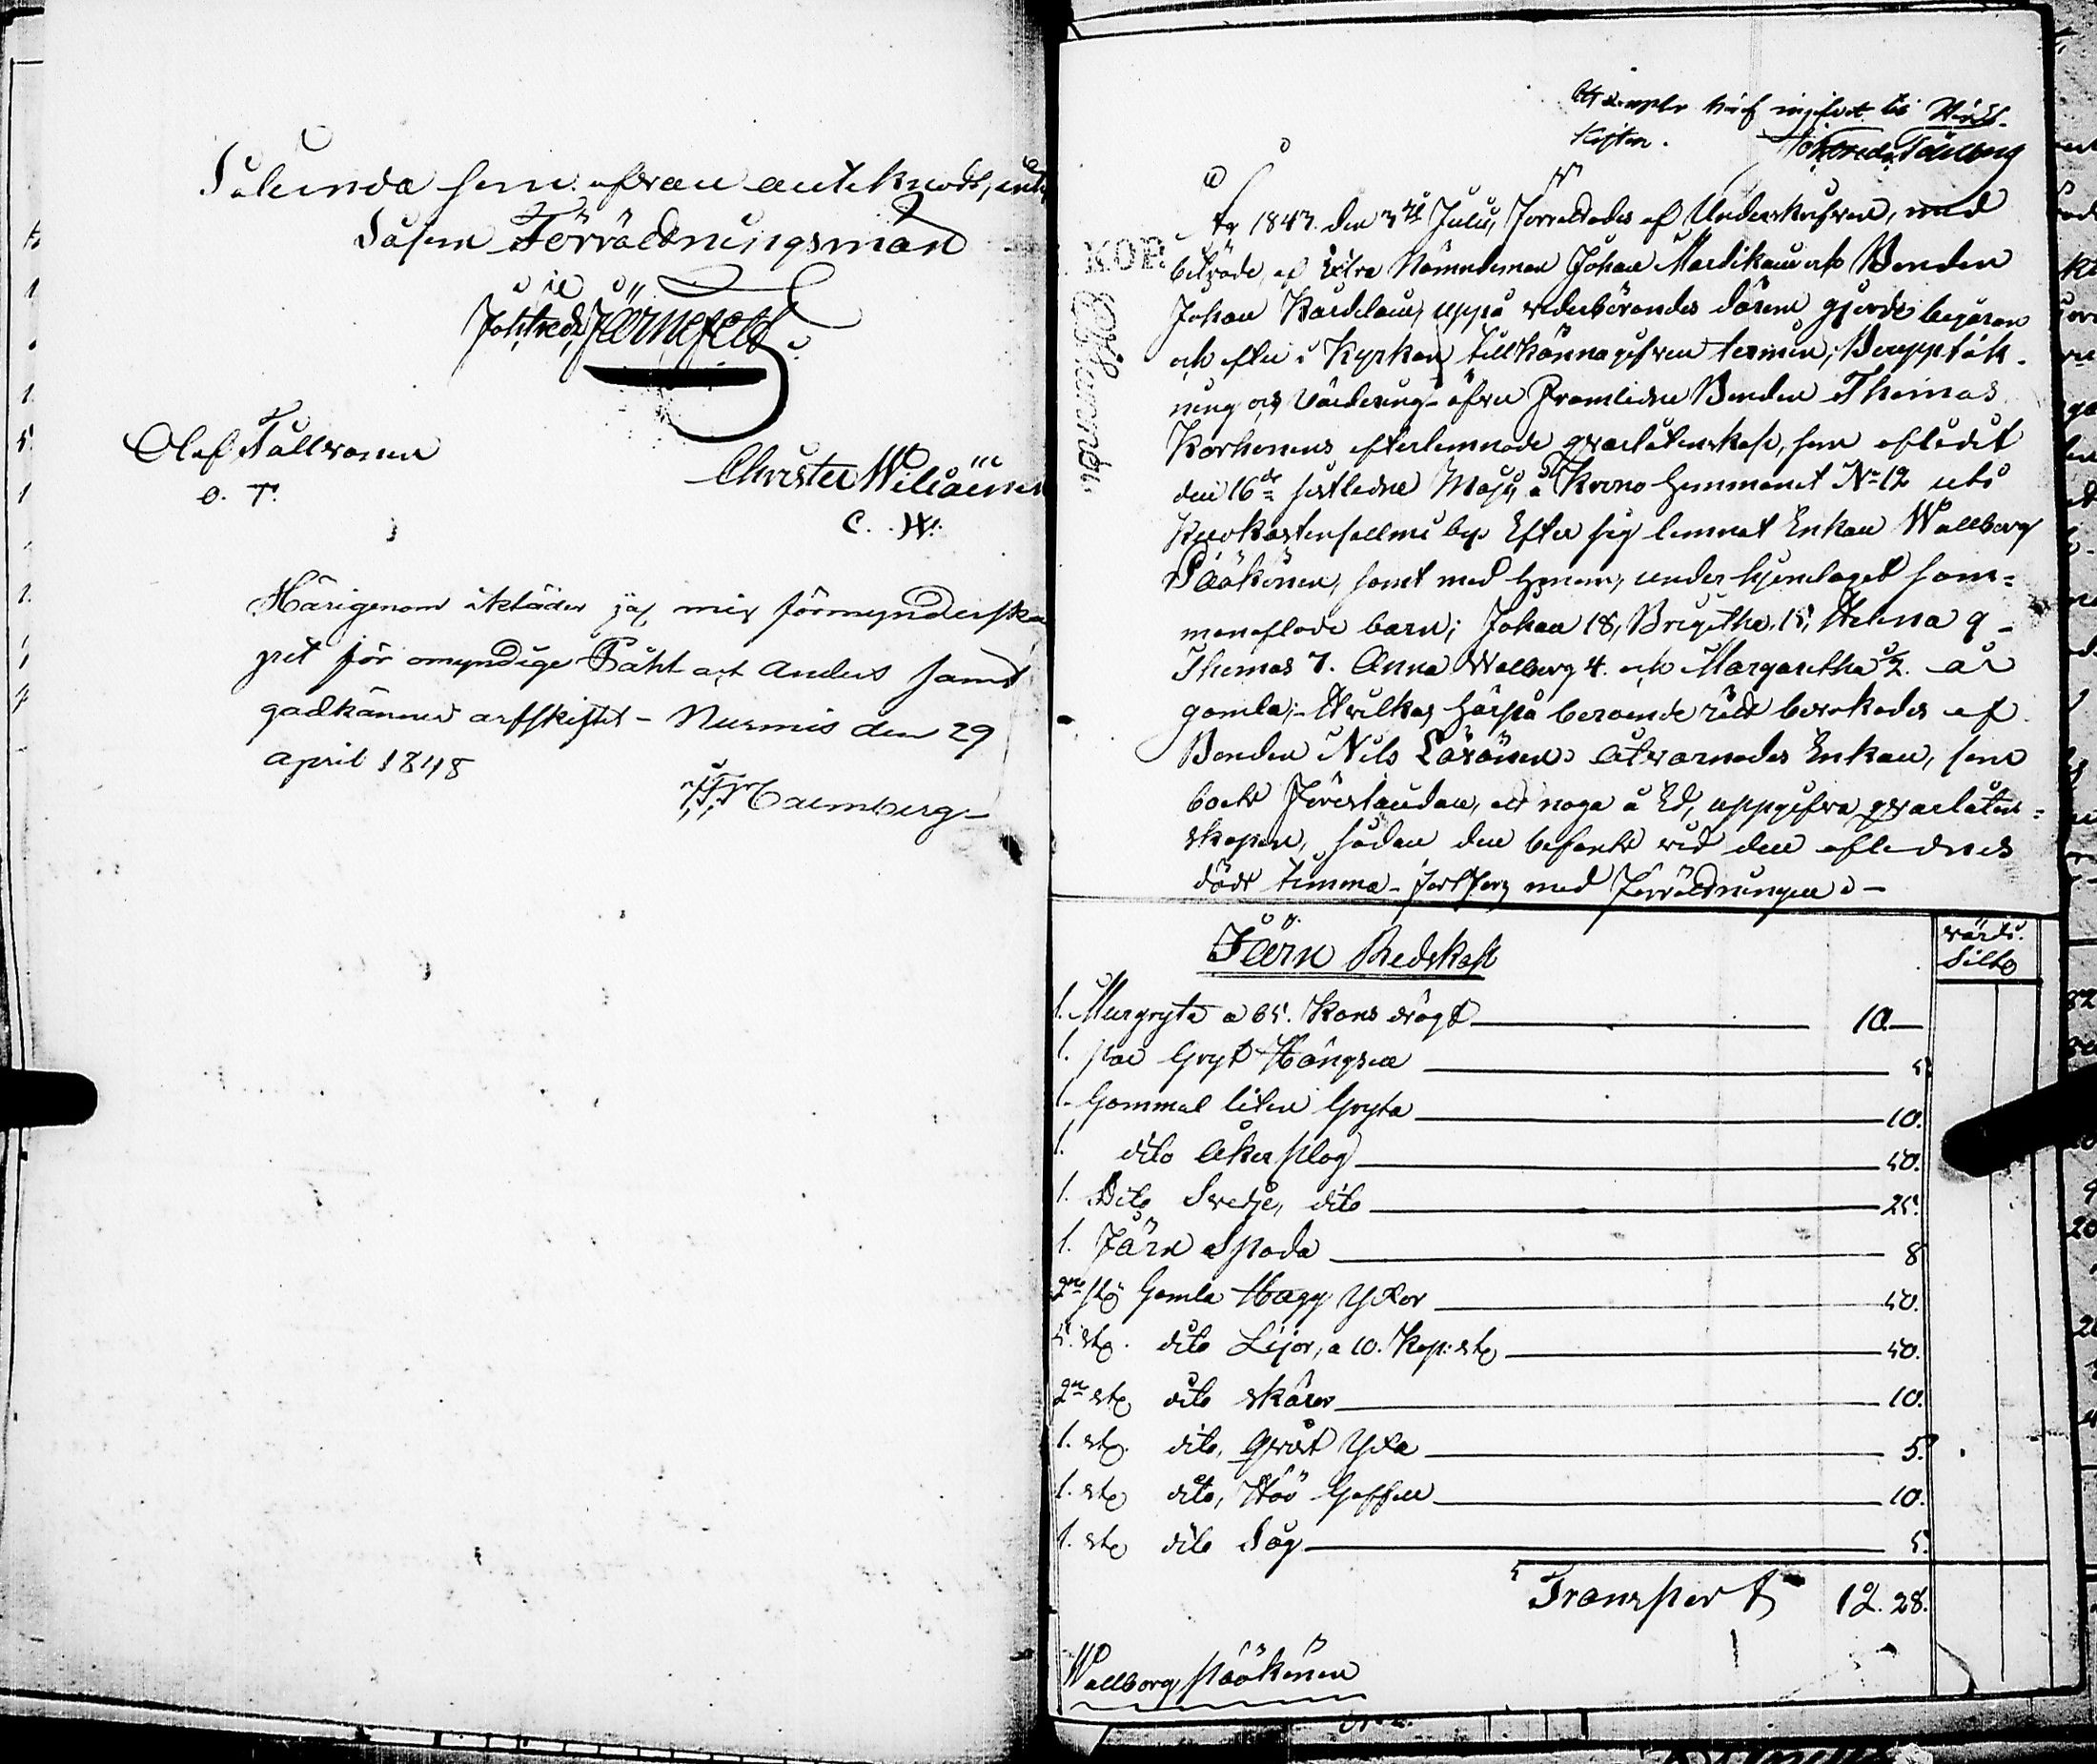 Sålunda som ofvan antecknadt, intygar
Såsom Förrättningsman
Johfredr Järnefelt
Olof Tallvanen
O. T.
Christer Wiliainen
C. W.
Härigenom åtkläder jag mig förmynderska
pet för omyndige Påhl och Anders samt
godkänner arfskiftet - Nurmis den 29
April 1848
Calmberg
häraf insefvet till
kisten.
År 1847. den 3die Julii, Förrättades af Underskrifven, med
beträde, af Extra Nämndeman Johan Mardikainen och Bonden
Johan Kardelain, uppå vederbörandes därom gjorde begäran
och efter i Kyrkan tillkännagifven termin, Bouppteck-
ning och Värdering öfver Framlidne Bonden Thomas
Korhonens efterlemnade qvarlåtenskap, som aflidit
den 16de sistledne Maji, å Krono Hemmanet No 12 uti
by. Efter sig lemnat Enkan Wallborg
Pääkönen, samt med henne, under hjonelaget sam-
manaflade barn; Johan 18, Brigitha 15, Helena 9
Thomas 7. Anna Walborg 4. och Margaretha ½ år
gamla;- Hvilkas härpå beroende rätt bevakades af
Bonden Nils Läxönen. Åtvarnades Enkan, som
boets Föreståndare, att noga å Ed, uppgifva qvarlåten-
skapen, sådan den befants vid den aflednes
döds timma - fortfors med Förrättningen -
KOP.
Järn Redskap
värde.
Silfr
1. Murgryta a 65. Kans drägt 10.
1. par Gryt Hängsen 5
1. Gammal liten Gryta 10.
1. dito Åker plog 50.
1. Dito Svedje, dito 25.
1. Järn Spada 8
2ne st. Gamla Hugg Yxor 50.
5. st. dito Lijor, a 10. Kop: st. 50.
2ne st. dito skäror 10.
1. st. dito, Qvist Yxa 5.
1. st. dito, Höö Gaffell 10.
1. st. dito Såg 5.
Transport 12. 28.
Wallborg Pääkönen